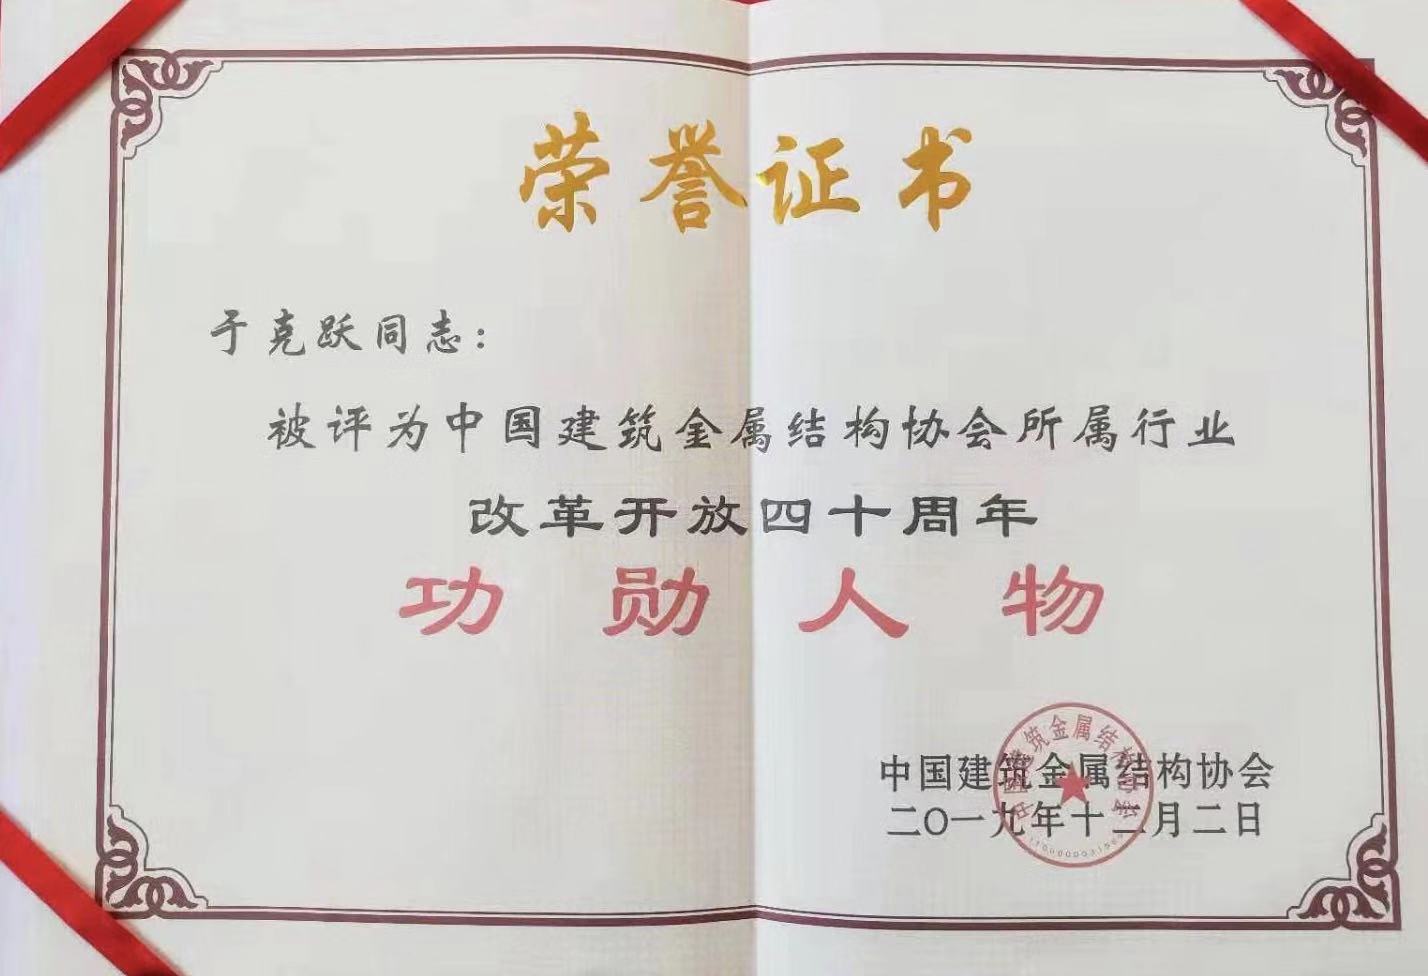 荣誉证书
于克跃同志：
被评为中国建筑金属结构协会所属行业
改革开放四十周年
功勋人物
中国建筑金属结构协会
二〇一九年十二月二日
中国建筑金属结构协会